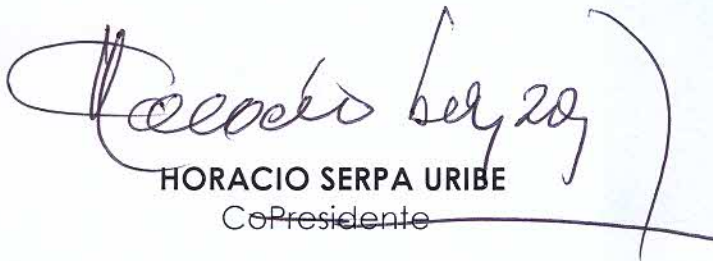 Horacio Serpa
HORACIO SERPA URIBE
CoPresidente